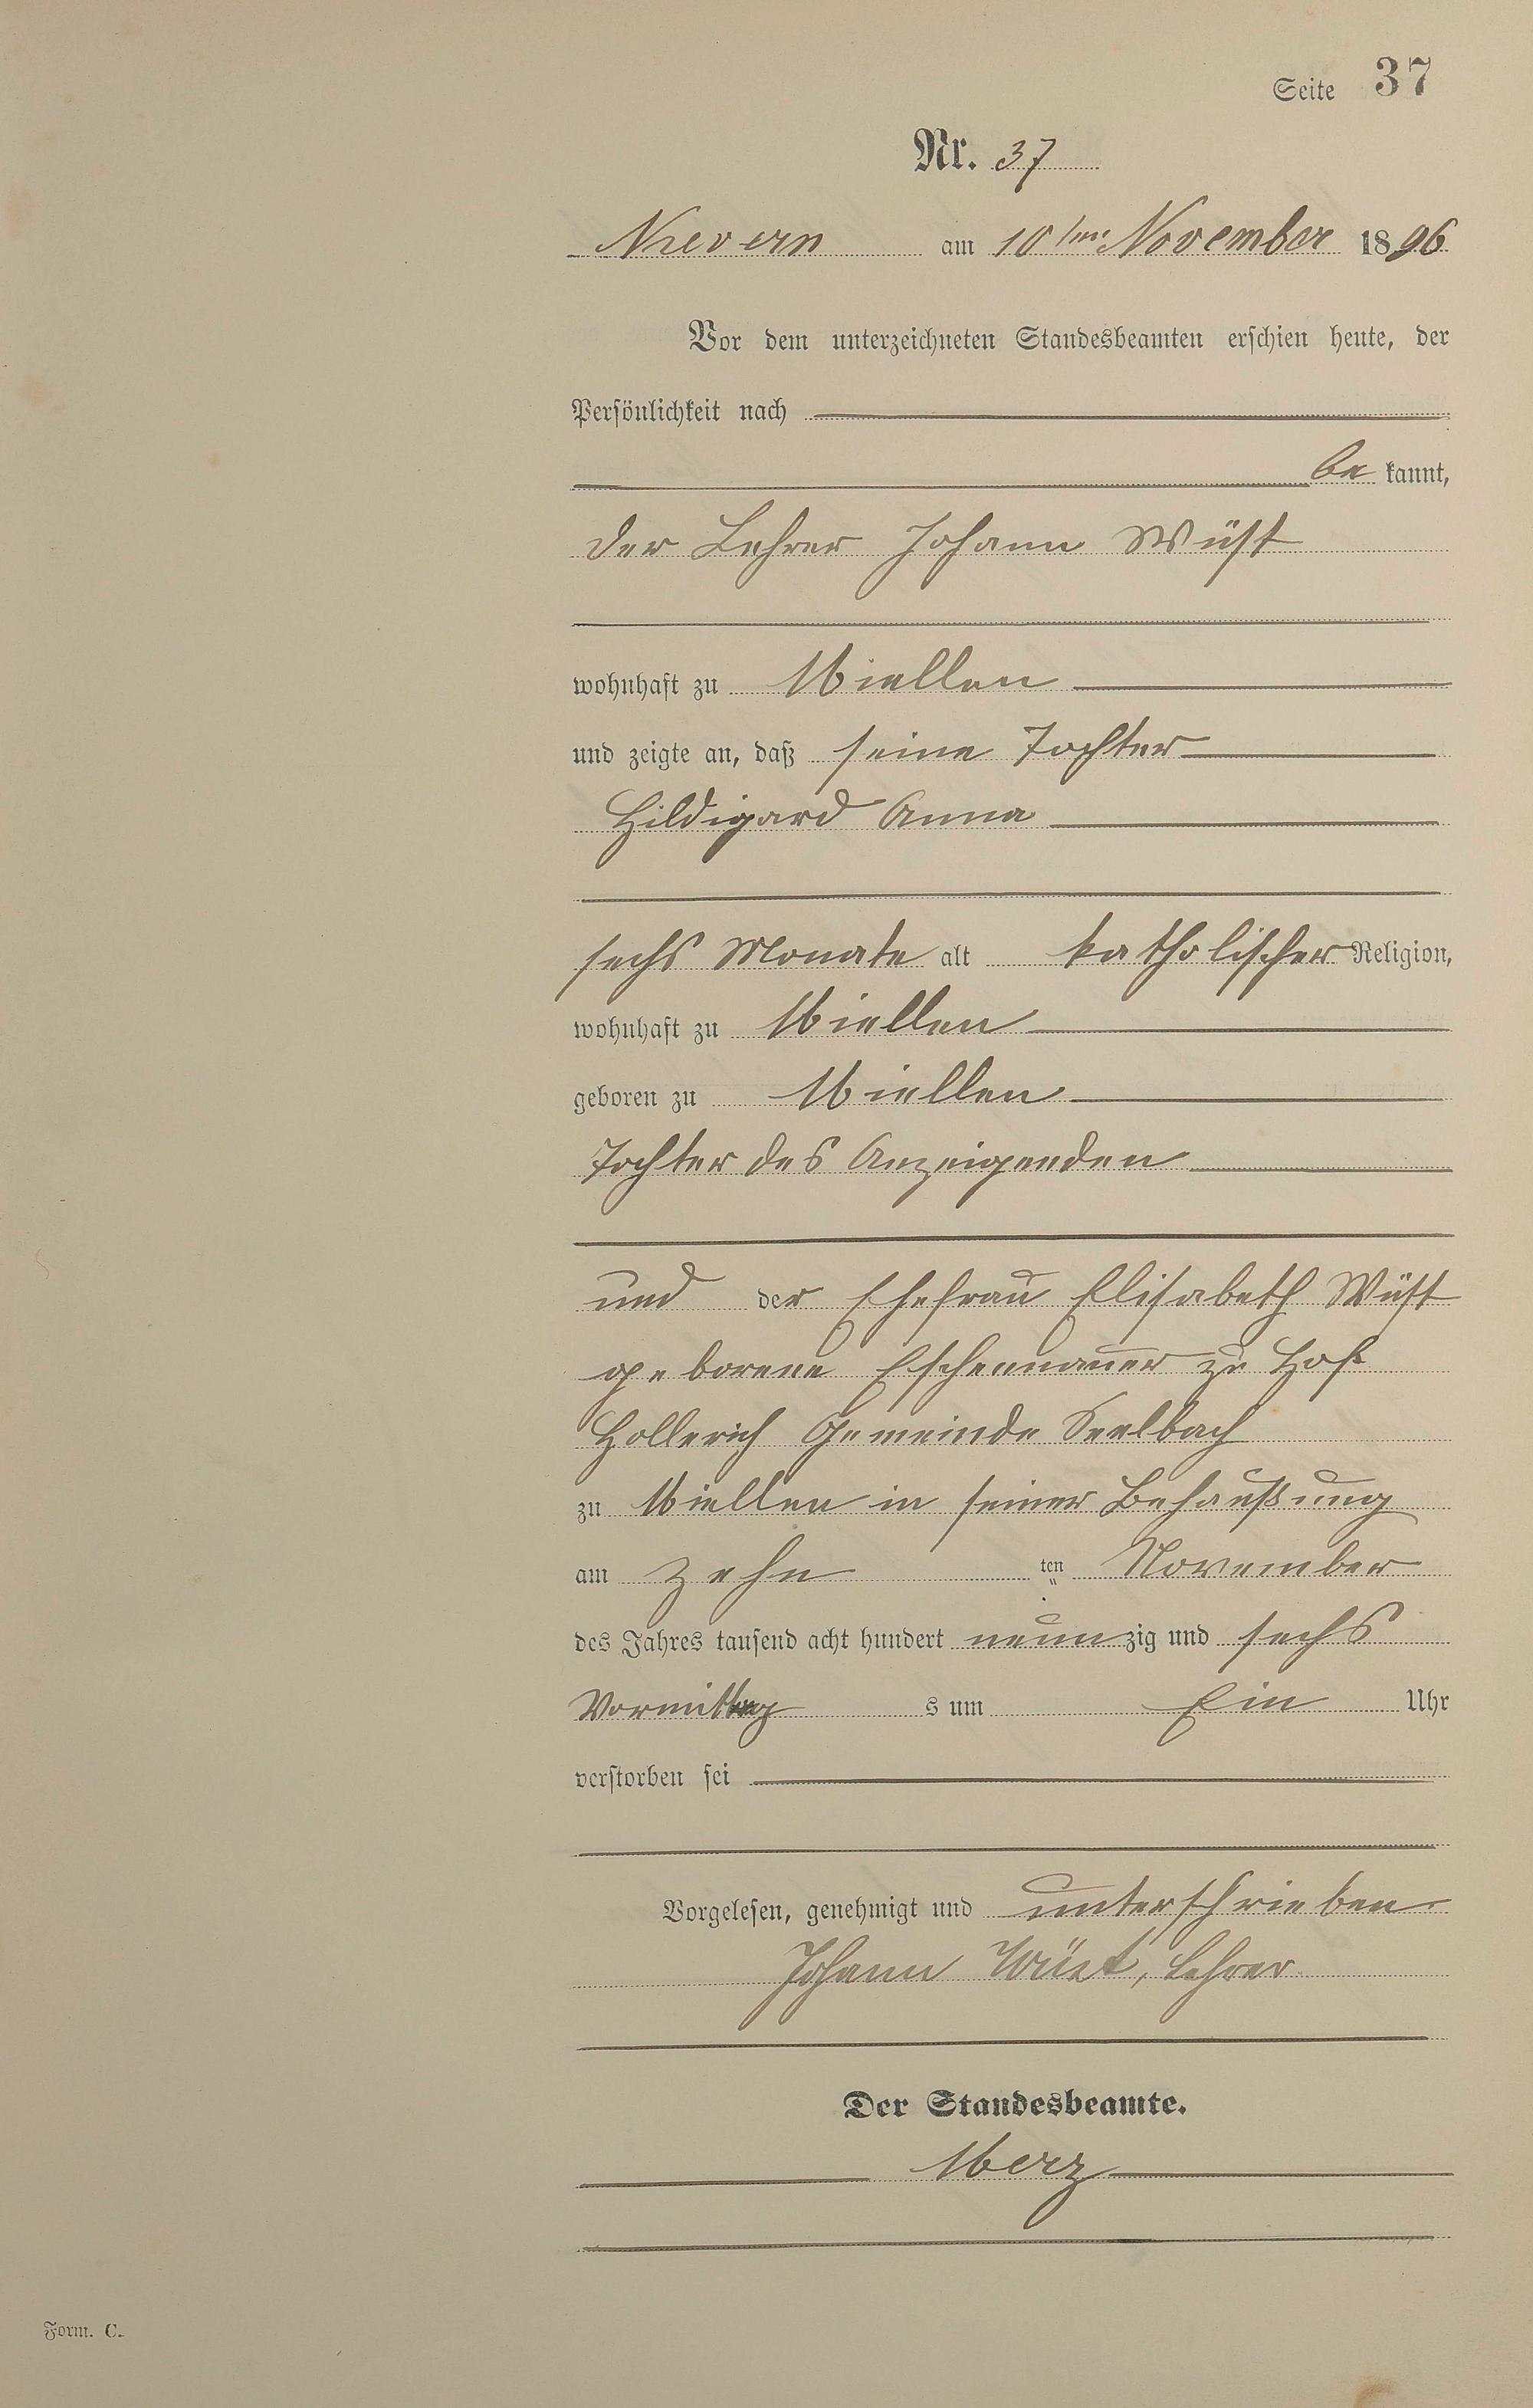 Seite 37
Nr. 37
Nievern am 10ten November 1896
Vor dem unterzeichneten Standesbeamten erschien heute, der
Persönlichkeit nach
bekannt,
der Lehrer Johann Wüst
wohnhaft zu Miellen
und zeigte an, daß seine Tochter
Hildigard Anna
sechs Monate alt katholischer Religion,
wohnhaft zu Miellen
geboren zu Miellen
Tochter des Anzeigenden
und der Ehefrau Elisabeth Wüst
geborene Eschenauer zu Hof
Hollerich Gemeinde Seelbach
zu Miellen in seiner Behaußung
am zehn ten November
des Jahres tausend acht hundert neunzig und sechs
Vormittags um Ein Uhr
verstorben sei
Vorgelesen, genehmigt und unterschrieben
Johann Wüst, Lehrer
Der Standesbeamte.
Merz
Form. C.